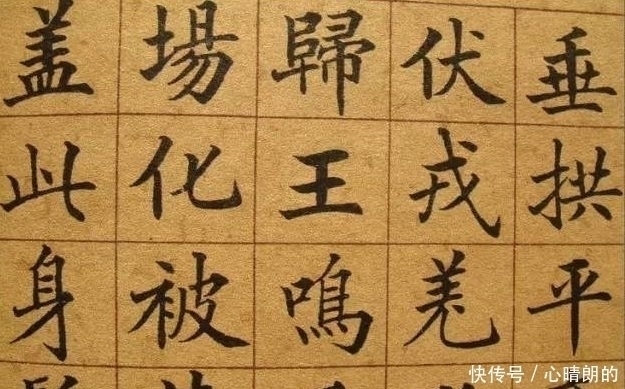 垂拱平
伏戎羌
歸王鳴
場化被
盖此身
快传号 / 心晴朗的